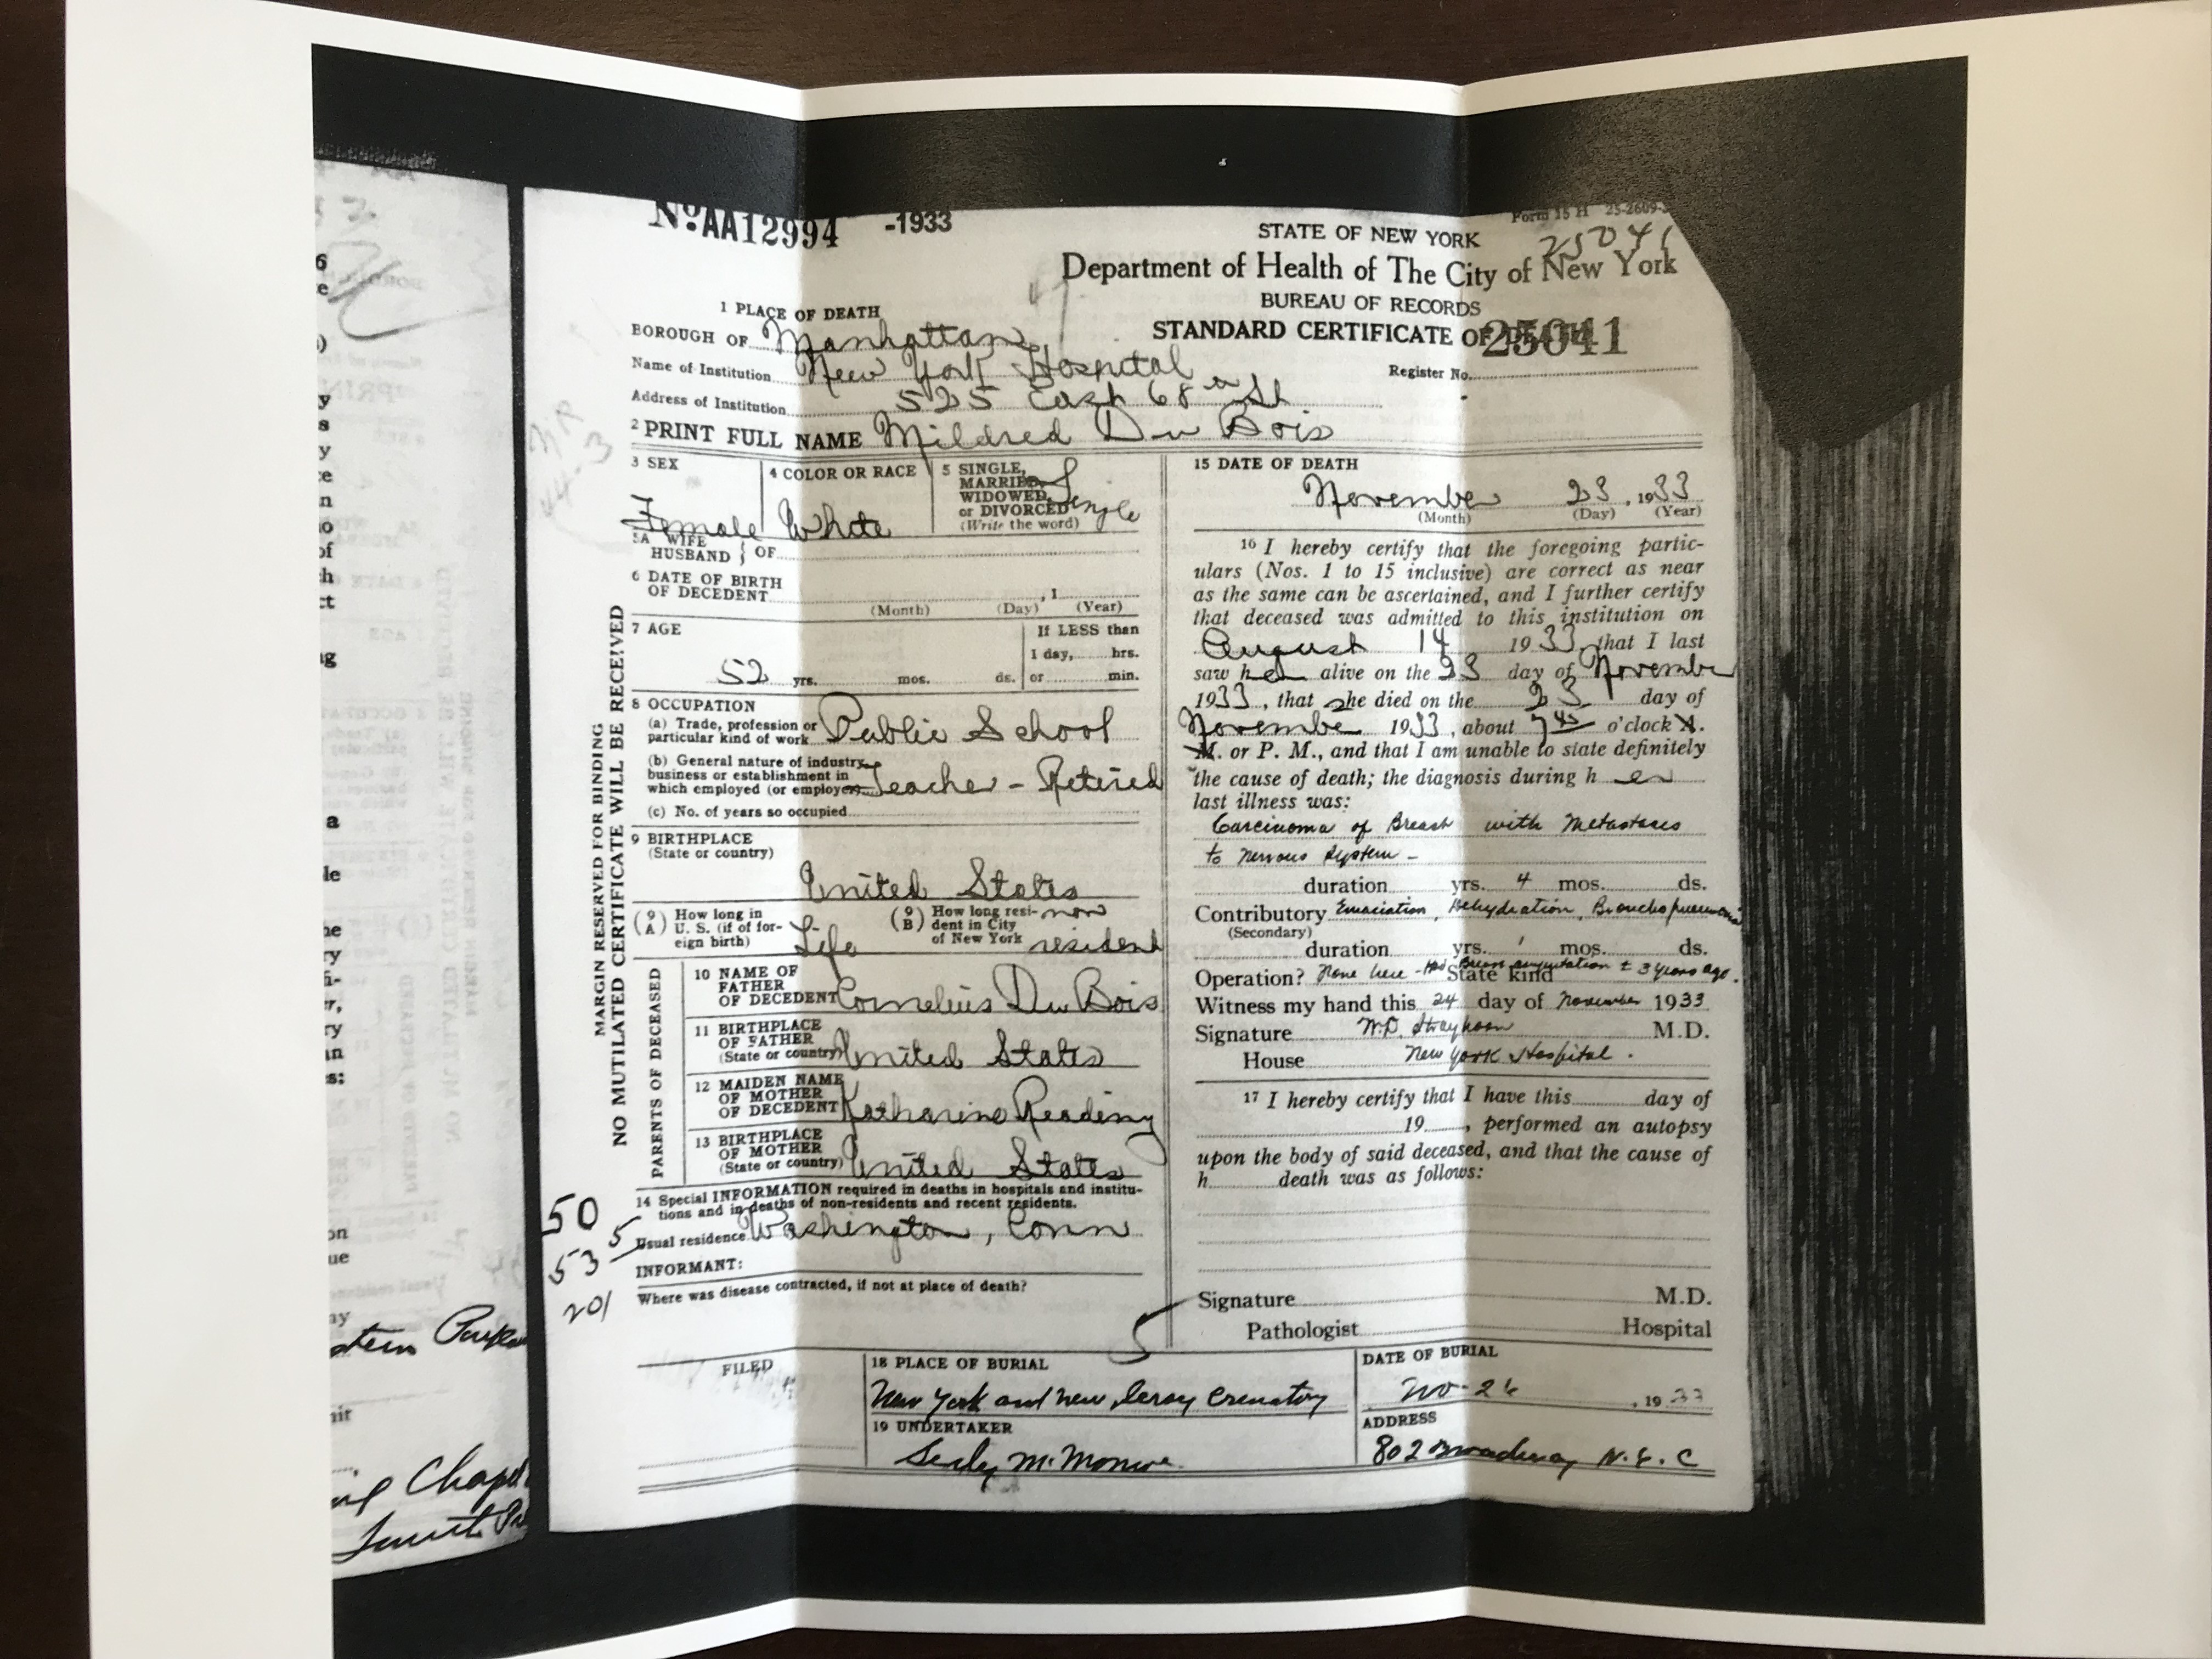 No. AA12994 -1933
Form 15 H 25-2609-
25041
STATE OF NEW YORK
Department of Health of The City of New York
BUREAU OF RECORDS
STANDARD CERTIFICATE OF
25041
Register No.
1 PLACE OF DEATH
BOROUGH OF Manhattan
Name of Institution New York Hospital
Address of Institution 525 East 68th St
2 PRINT FULL NAME Mildred Du Bois
3 SEX
Female
4 COLOR OR RACE
White
5 SINGLE,
MARRIED,
WIDOWED,
or DIVORCED
(Write the word)
Single
5A WIFE
HUSBAND } OF
6 DATE OF BIRTH
OF DECEDENT , 1
(Month) (Day) (Year)
7 AGE
52 yrs. mos. ds.
If LESS than
1 day, hrs.
or min.
8 OCCUPATION
(a) Trade, profession or
particular kind of work Public School
(b) General nature of industry,
business or establishment in
which employed (or employer) Teacher - Retired
(c) No. of years so occupied
9 BIRTHPLACE
(State or country)
United States
(9A) How long in
U. S. (if of for-
eign birth) Life
(9B) How long resi-
dent in City
of New York
non
resident
PARENTS OF DECEASED
10 NAME OF
FATHER
OF DECEDENT Cornelius Du Bois
11 BIRTHPLACE
OF FATHER
(State or country) United States
12 MAIDEN NAME
OF MOTHER
OF DECEDENT Katharine Reading
13 BIRTHPLACE
OF MOTHER
(State or country) United States
14 Special INFORMATION required in deaths in hospitals and institu-
tions and in deaths of non-residents and recent residents.
Usual residence Washington, Conn
INFORMANT:
Where was disease contracted, if not at place of death?
50
5
53
201
MARGIN RESERVED FOR BINDING
NO MUTILATED CERTIFICATE WILL BE RECEIVED
15 DATE OF DEATH
November 23, 1933
(Month) (Day) (Year)
16 I hereby certify that the foregoing partic-
ulars (Nos. 1 to 15 inclusive) are correct as near
as the same can be ascertained, and I further certify
that deceased was admitted to this institution on
August 14 1933, that I last
saw her alive on the 23 day of November
1933, that she died on the 23 day of
November 1933, about 7 45 o'clock A.
M. or P. M., and that I am unable to state definitely
the cause of death; the diagnosis during her
last illness was:
Carcinoma of Breast with Metastases
to nervous system -
duration yrs. 4 mos. ds.
Contributory Emaciation, Dehydration, Bronchopneumonia
(Secondary)
duration yrs. 1 mos. ds.
Operation? None here - Had Breast amputation ± 3 years ago.
State kind
Witness my hand this 24 day of November 1933
Signature W.D. Strayhorn M.D.
House New York Hospital.
17 I hereby certify that I have this day of
19 , performed an autopsy
upon the body of said deceased, and that the cause of
h death was as follows:
Signature M.D.
Pathologist Hospital
FILED
18 PLACE OF BURIAL
New York and New Jersey Crematory
DATE OF BURIAL
, 1933
19 UNDERTAKER
ADDRESS
802 Broadway N.Y.C